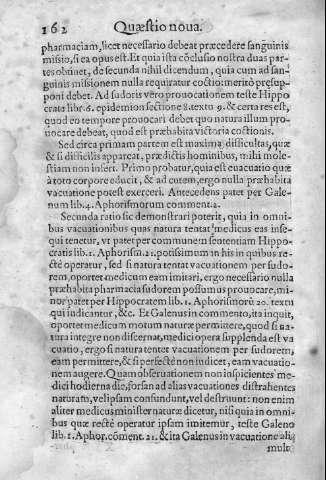 162 Quæstio noua.
pharmaciam, licet necessario debeat præcedere sanguinis
missio, si ea opus est. Et quia ista cōclusio nostra duas par-
tes obtinet, de secunda nihil dicendum, quia cum ad san-
guinis missionem nulla requiratur coctio: meritò præsup-
poni debet. Ad sudoris verò prouocationem teste Hippo
crate libr. 6. epidemion sectione 8. textu 9. & certa res est,
quod eo tempore prouocari debet quo natura illum prou-
uocare debeat, quod est præhabita victoria coctionis.
Sed circa primam partem est maxima difficultas, quæ
& si difficilis appareat, prædictis hominibus, mihi mole-
stiam non infert. Primo probatur, quia est euacuatio quæ
à toto corpore educit, & ad cutem, ergo nulla præhabita
vacuatione potest exerceri. Antecedens patet per Gale-
num lib. 4. Aphorismorum comment. 2.
Secunda ratio sic demonstrari poterit, quia in omni-
bus vacuationibus quas natura tentat medicus eas inse-
qui tenetur, vt patet per communem sententiam Hippo-
cratis lib. 1. Aphorism. 21. potissimum in his in quibus re-
ctè operatur, sed si natura tentat vacuationem per sudo-
rem, oportet medicum eam imitari, ergo necessario nulla
præhabita pharmacia sudorem possumus prouocare, mi-
nor patet per Hippocratem lib. 1. Aphorismorũ 20. textu
qui iudicantur, &c. Et Galenus in commento, ita inquit,
oportet medicum motum naturæ permittere, quod si na-
tura integre non discernat, medici opera supplenda est va
cuatio, ergo si natura tentet vacuationem per sudorem,
eam permittere, & si perfectè non iudicet, eam vacuatio-
nem augere. Quam obseruationem non inspicientes me-
dici hodierna die, forsan ad alias vacuationes distrahentes
naturam, vel ipsam confundunt, vel destruunt: non enim
aliter medicus minister naturæ dicetur, nisi quia in omni-
bus quæ rectè operatur ipsam imitemur, teste Galeno
lib. 1. Aphor. cõment. 21. & ita Galenus in vacuatione ali
mul